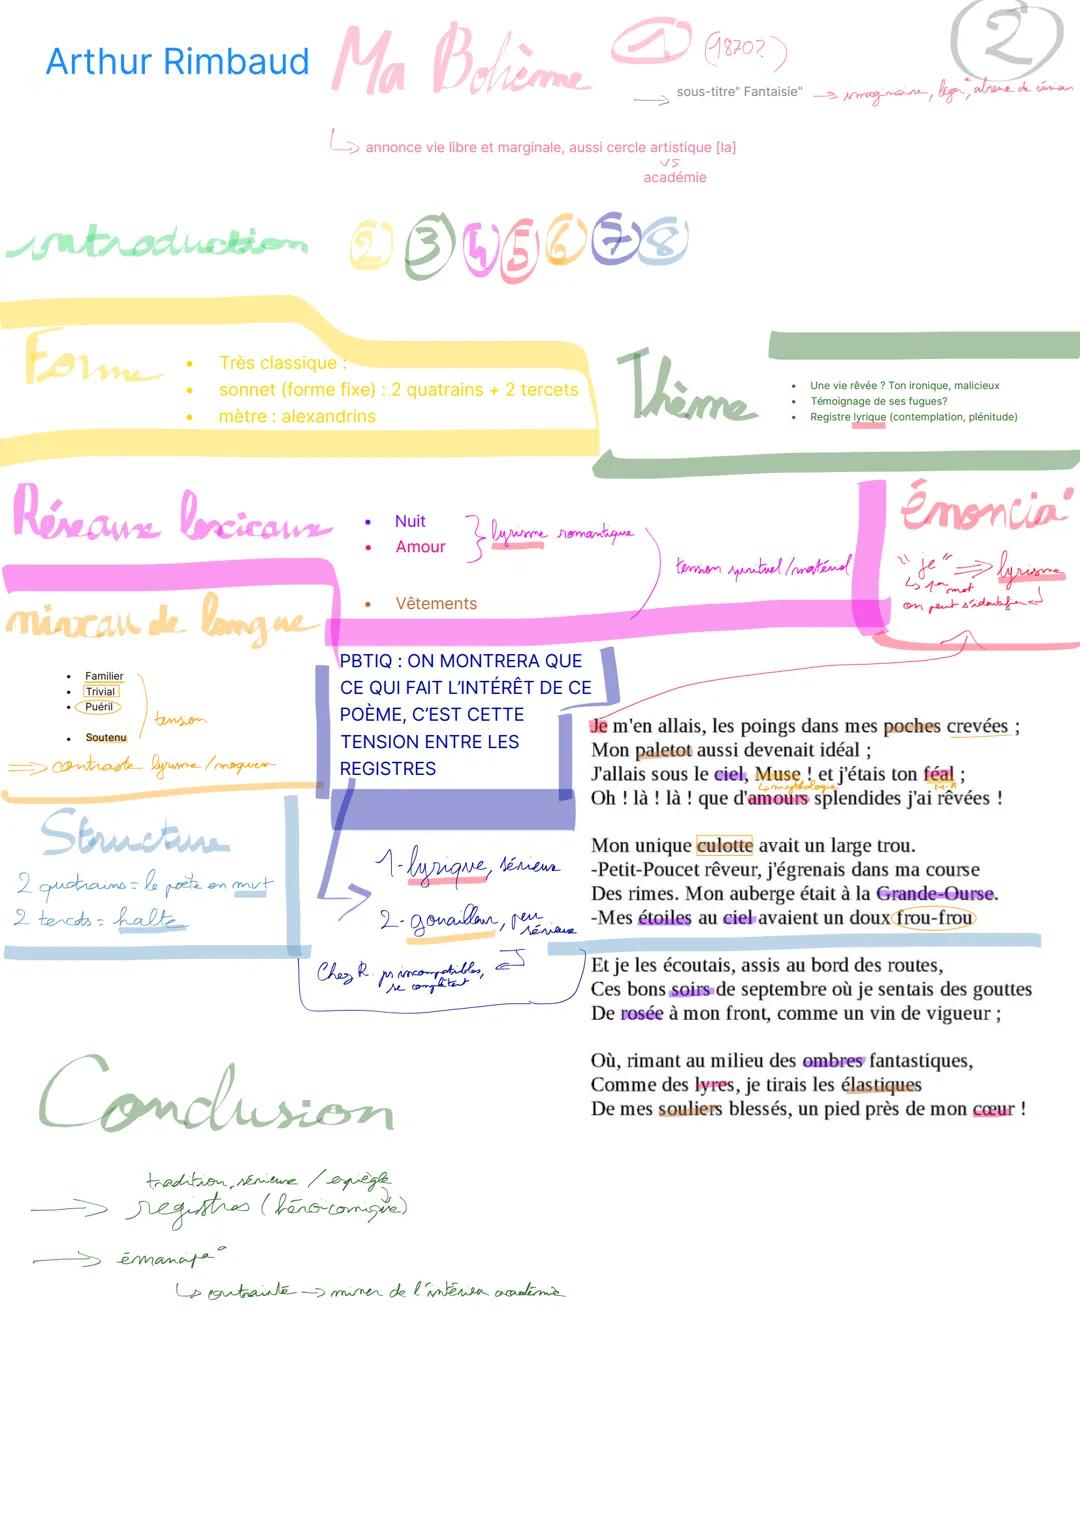 Arthur Rimbaud
Ma Bohème
1
(1870?)
2
sous-titre" Fantaisie"
imaginaire, léger
annonce vie libre et marginale, aussi cercle artistique [la]
vs
académie
introduction
2 3 4 5 6 7 8
Forme
Très classique :
sonnet (forme fixe) : 2 quatrains + 2 tercets
mètre : alexandrins
Thème
Une vie rêvée ? Ton ironique, malicieux
Témoignage de ses fugues?
Registre lyrique (contemplation, plénitude)
Réseaux lexicaux
Nuit
Amour
lyrisme romantique
Vêtements
tension spirituel/matériel
Énonciaº
"je" => lyrisme
1er mot
on peut s'identifier
niveau de langue
Familier
Trivial
Puéril
Soutenu
tension
=> contraste lyrisme/moqueur
PBTIQ : ON MONTRERA QUE
CE QUI FAIT L'INTÉRÊT DE CE
POÈME, C'EST CETTE
TENSION ENTRE LES
REGISTRES
1- lyrique, sérieux
2- gouailleur, peu sérieux
Chez R. pas incompatibles,
se complètent
Structure
2 quatrains = le poète en mvt
2 tercets = halte
Je m'en allais, les poings dans mes poches crevées ;
Mon paletot aussi devenait idéal ;
J'allais sous le ciel, Muse ! et j'étais ton féal ;
mythologie
M-A
Oh ! là ! là ! que d'amours splendides j'ai rêvées !
Mon unique culotte avait un large trou.
-Petit-Poucet rêveur, j'égrenais dans ma course
Des rimes. Mon auberge était à la Grande-Ourse.
-Mes étoiles au ciel avaient un doux frou-frou
Et je les écoutais, assis au bord des routes,
Ces bons soirs de septembre où je sentais des gouttes
De rosée à mon front, comme un vin de vigueur ;
Où, rimant au milieu des ombres fantastiques,
Comme des lyres, je tirais les élastiques
De mes souliers blessés, un pied près de mon cœur !
Conclusion
tradition, sérieux / espiègle
registres (héroï-comique)
émancipaº
contrainte -> miner de l'intérieur académie